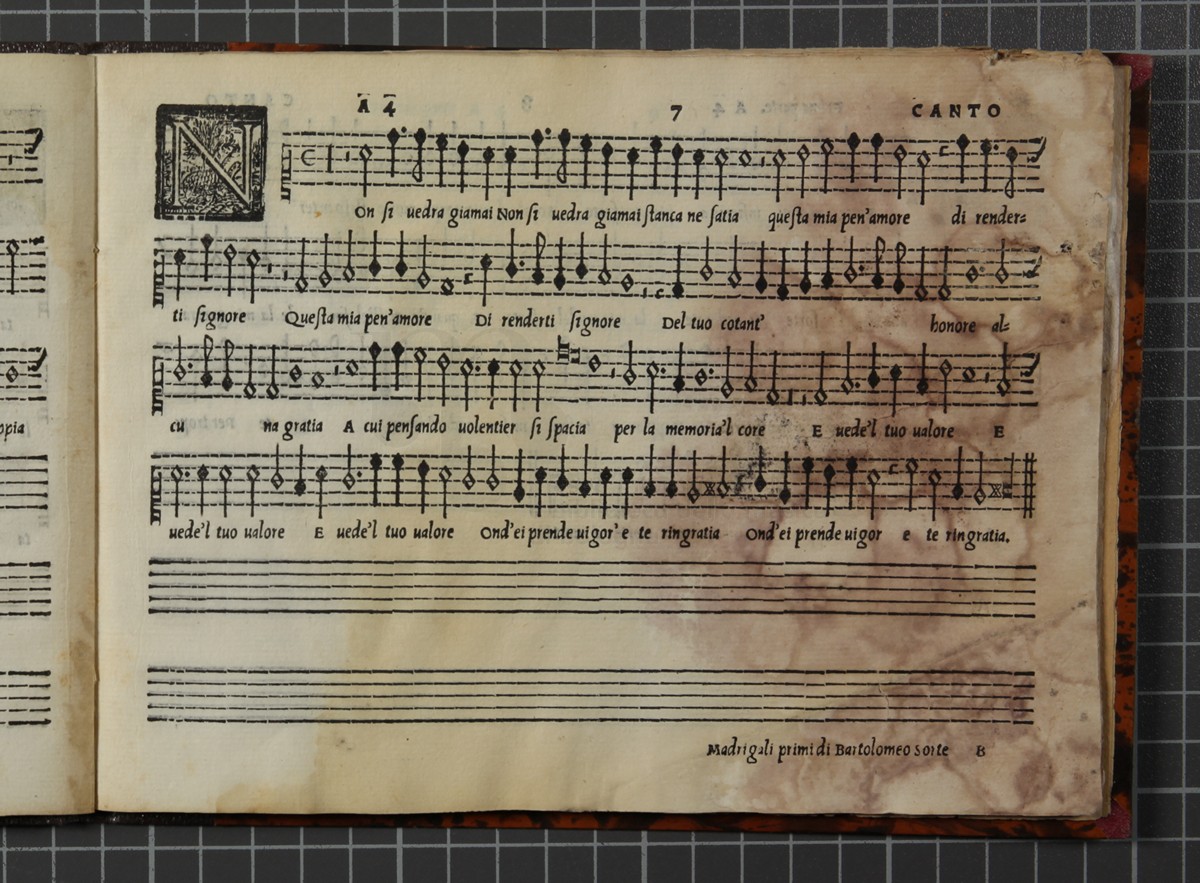 A 4 7 CANTO
NOn ſi uedra giamai Non ſi uedra giamai ſtanca ne ſatia queſta mia pen'amore di render=
ti ſignore Queſta mia pen'amore Di renderti ſignore Del tuo cotant' honore al=
cu na gratia A cui penſando uolentier ſi ſpacia per la memoria'l core E uede'l tuo ualore E
uede'l tuo ualore E uede'l tuo ualore Ond'ei prende uigor' e te ringratia Ond'ei prende uigor e te ringratia.
Madrigali primi di Bartolomeo Sorte B